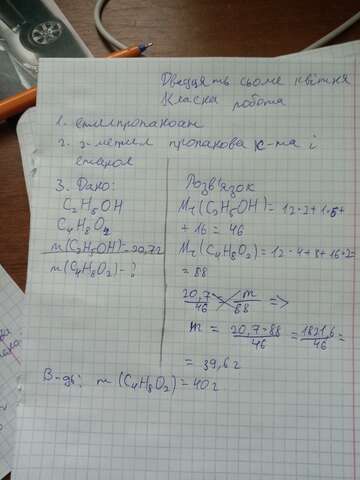 Двадцять сьоме квітня
Класна робота
1. етилпропаноат
2. 2-метил пропанова к-та і
етанол
3. Дано:
C₂H₅OH
C₄H₈O₂
m(C₂H₅OH)=20,7г
m(C₄H₈O₂)-?
Розв'язок
Mr(C₂H₅OH)=12·2+1·5+
+16=46
Mr(C₄H₈O₂)=12·4+8+16·2=
=88
20,7/46 = m/88 =>
m = 20,7·88/46 = 1821,6/46 =
=39,6г
В-дь: m(C₄H₈O₂)=40г